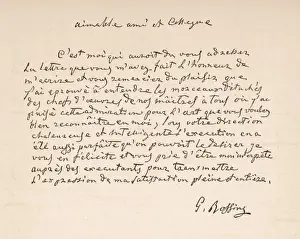 aimable ami et Collegue
C'est moi qui auroit du vous adresser
La lettre que vous m'avez fait l'honneur de
m'ecrire et vous remercier du plaisir que
j'ai eprouvé a entendre les morceaux détachés
des chefs d'œuvres de nos maîtres a tous où j'ai
puisé cette admiration pour l'art que vous voulez
bien reconnaitre en moi, Sous votre direction
chaleureuse et intelligente l'execution en a
été aussi parfaite qu'on pouvoit le desirer je
vous en felicite et vous prie d'être mon interprete
auprès des executants pour transmettre
L'expression de ma satisfaction pleine et entière.
G. Rossini